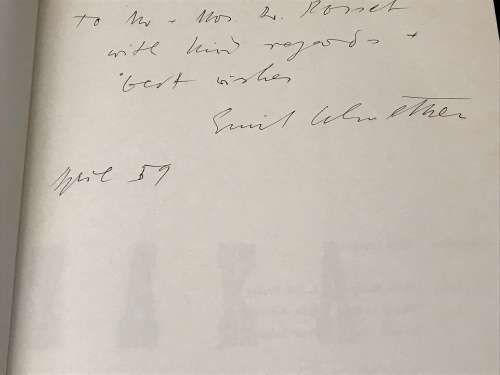 To Mr + Mrs. W. Rosset
with kind regards +
best wishes
Emil
April 59